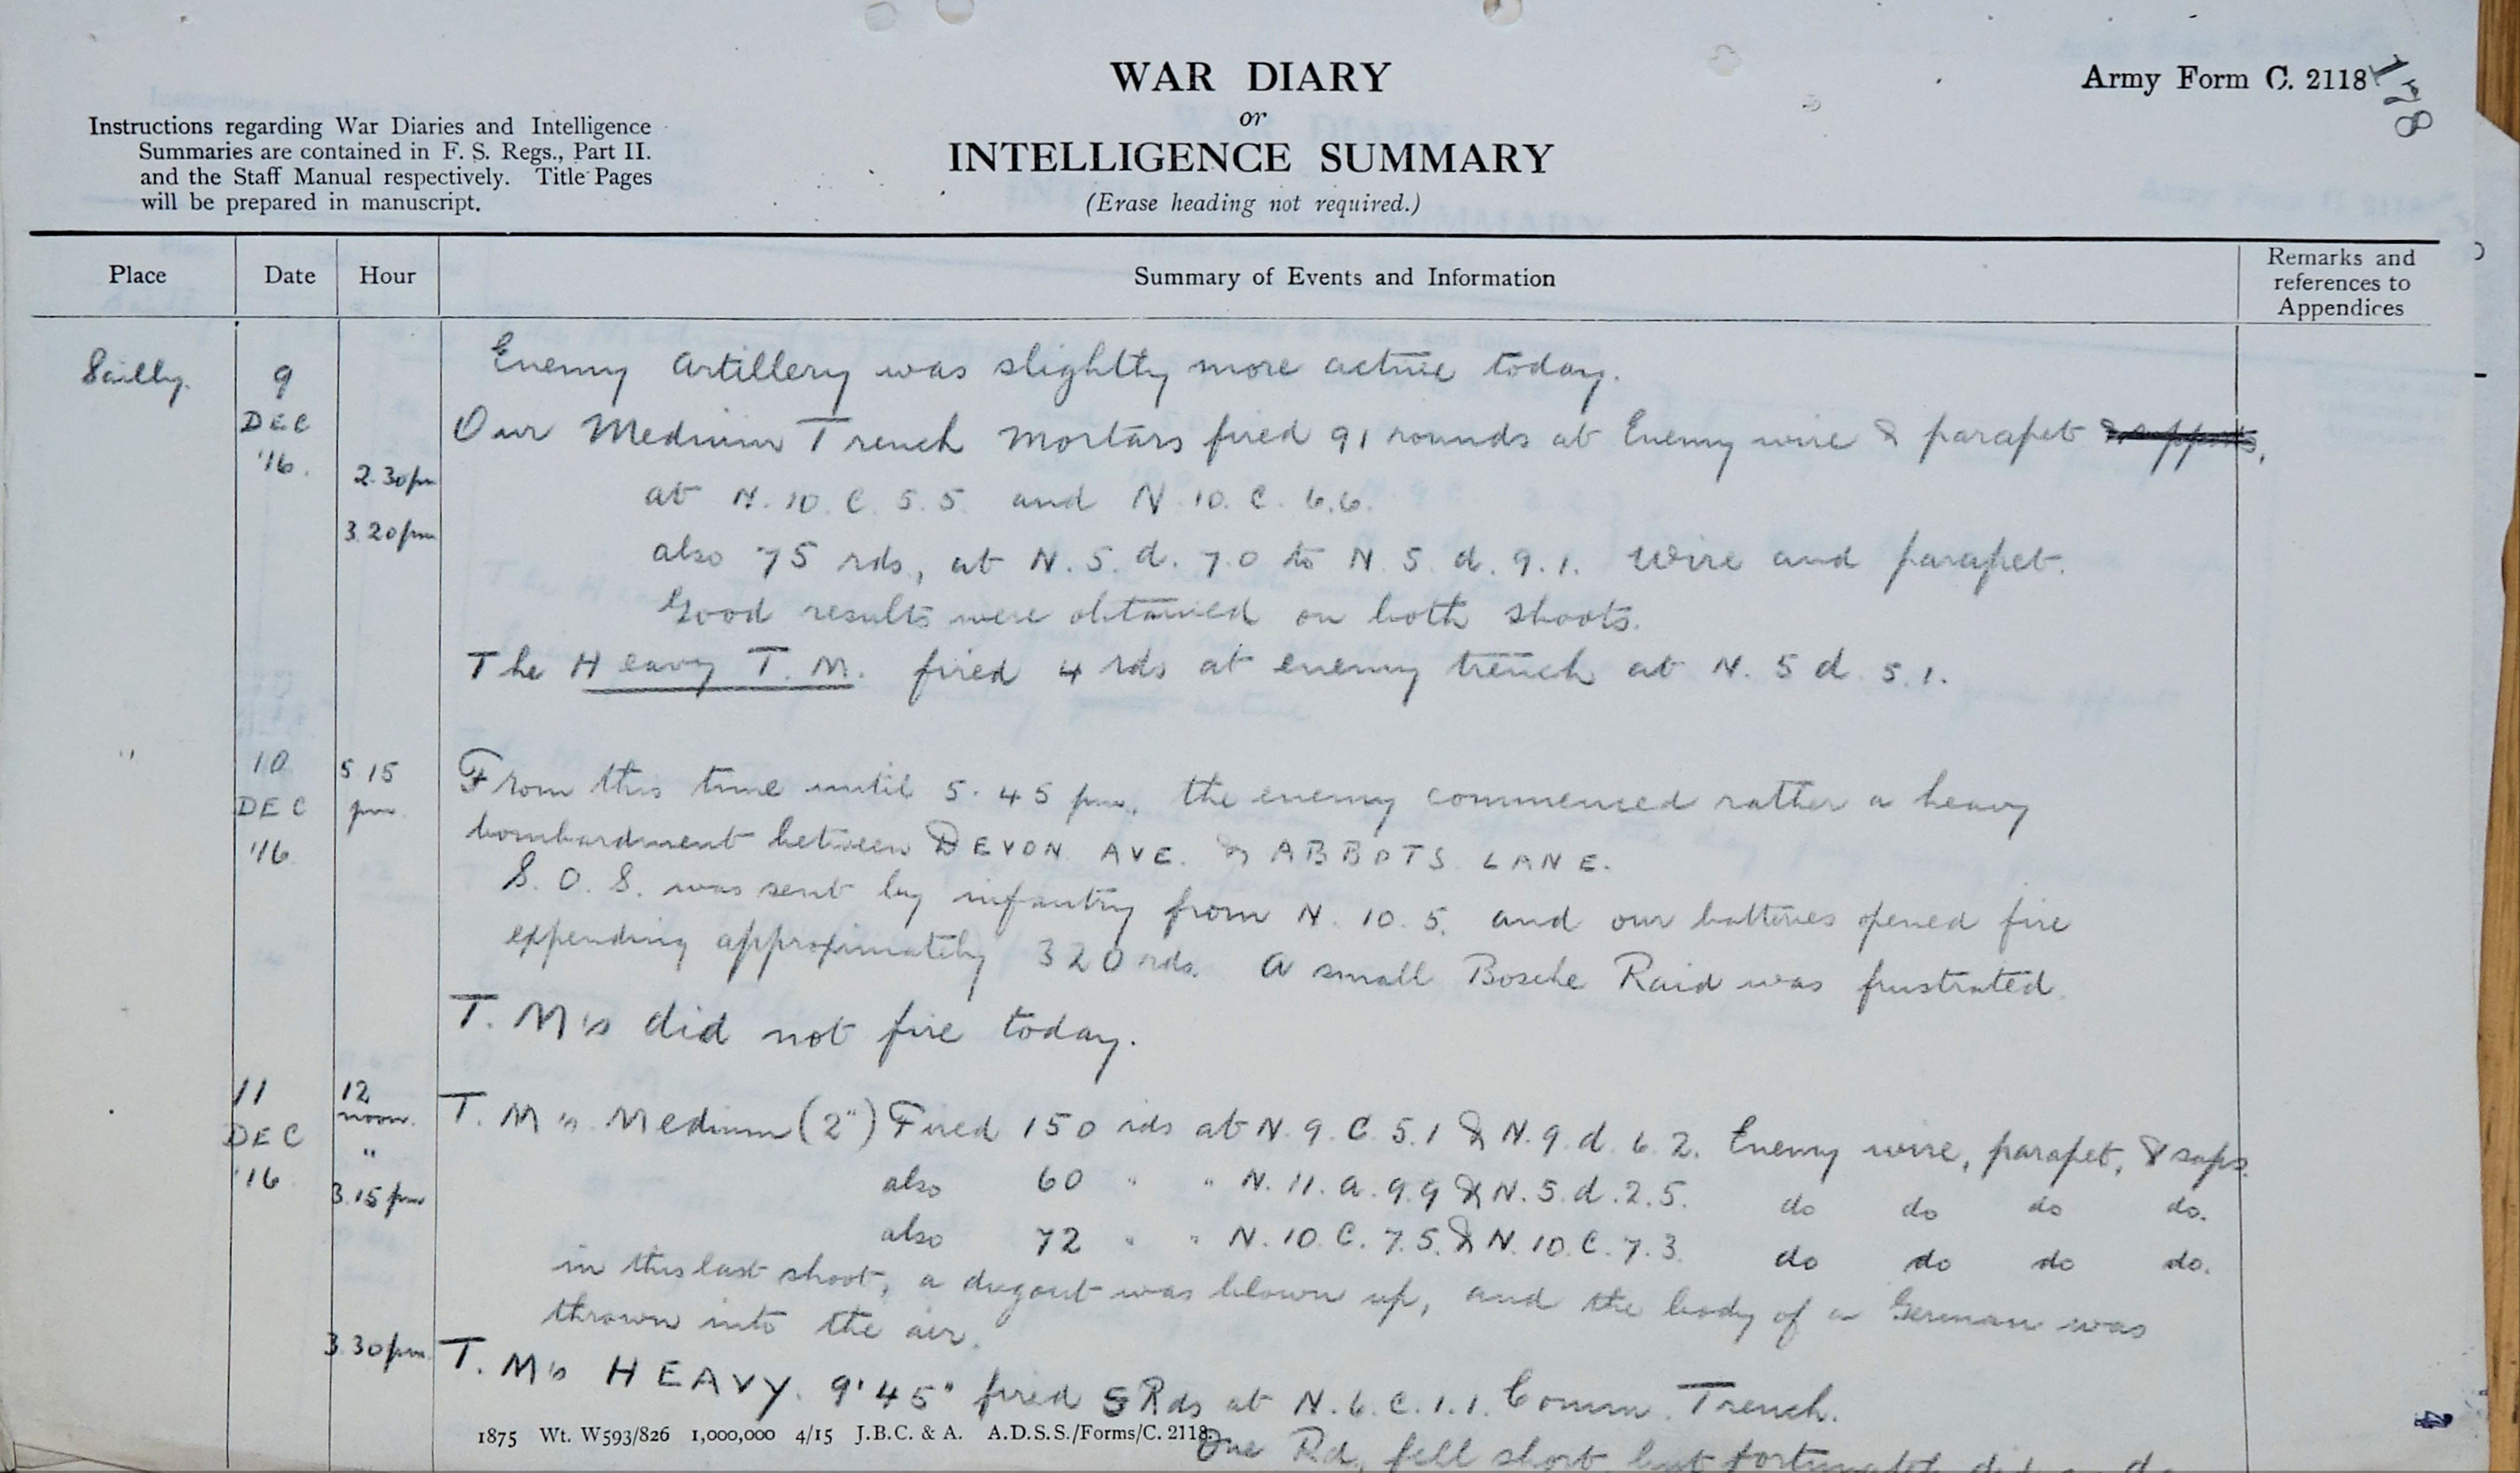 WAR DIARY
or
INTELLIGENCE SUMMARY
(Erase heading not required.)
Army Form C. 2118
178
Instructions regarding War Diaries and Intelligence
Summaries are contained in F. S. Regs., Part II.
and the Staff Manual respectively. Title Pages
will be prepared in manuscript.
Place Date Hour Summary of Events and Information Remarks and references to Appendices
Sailly. 9 Enemy Artillery was slightly more active today.
DEC Our Medium Trench Mortars fired 91 rounds at Enemy wire & parapet
'16. 2.30 pm at N. 10. C. 5.5 and N. 10. C. 6.6.
3.20 pm also 75 rds, at N. 5. d. 7.0 to N. 5. d. 9.1. Wire and parapet.
Good results were obtained on both shoots.
The Heavy T. M. fired 4 rds at enemy trench at N. 5 d. 5.1.
" 10 5 15 From this time until 5.45 pm. the enemy commenced rather a heavy
DEC pm. bombardment between DEVON AVE. & ABBOTS LANE.
'16 S. O. S. was sent by infantry from N. 10. 5. and our batteries opened fire
expending approximately 320 rds. A small Bosche Raid was frustrated.
T. M's did not fire today.
11 12 T. M's Medium (2") Fired 150 rds at N. 9. C. 5.1 & N. 9. d. 6.2. Enemy wire, parapet, & saps.
DEC noon.
'16 " also 60 " " N. 11. a. 9.9 & N. 5. d. 2.5. do do do do.
3.15 pm also 72 " " N. 10. C. 7.5. & N. 10. C. 7.3. do do do do.
in this last shoot, a dugout was blown up, and the body of a German was
thrown into the air.
3.30 pm. T. M's HEAVY. 9'45" fired 5 Rds at N. 6. C. 1.1. Comm. Trench.
1875 Wt. W593/826 1,000,000 4/15 J.B.C. & A. A.D.S.S./Forms/C. 2118.
One Rd, fell short, but fortunately